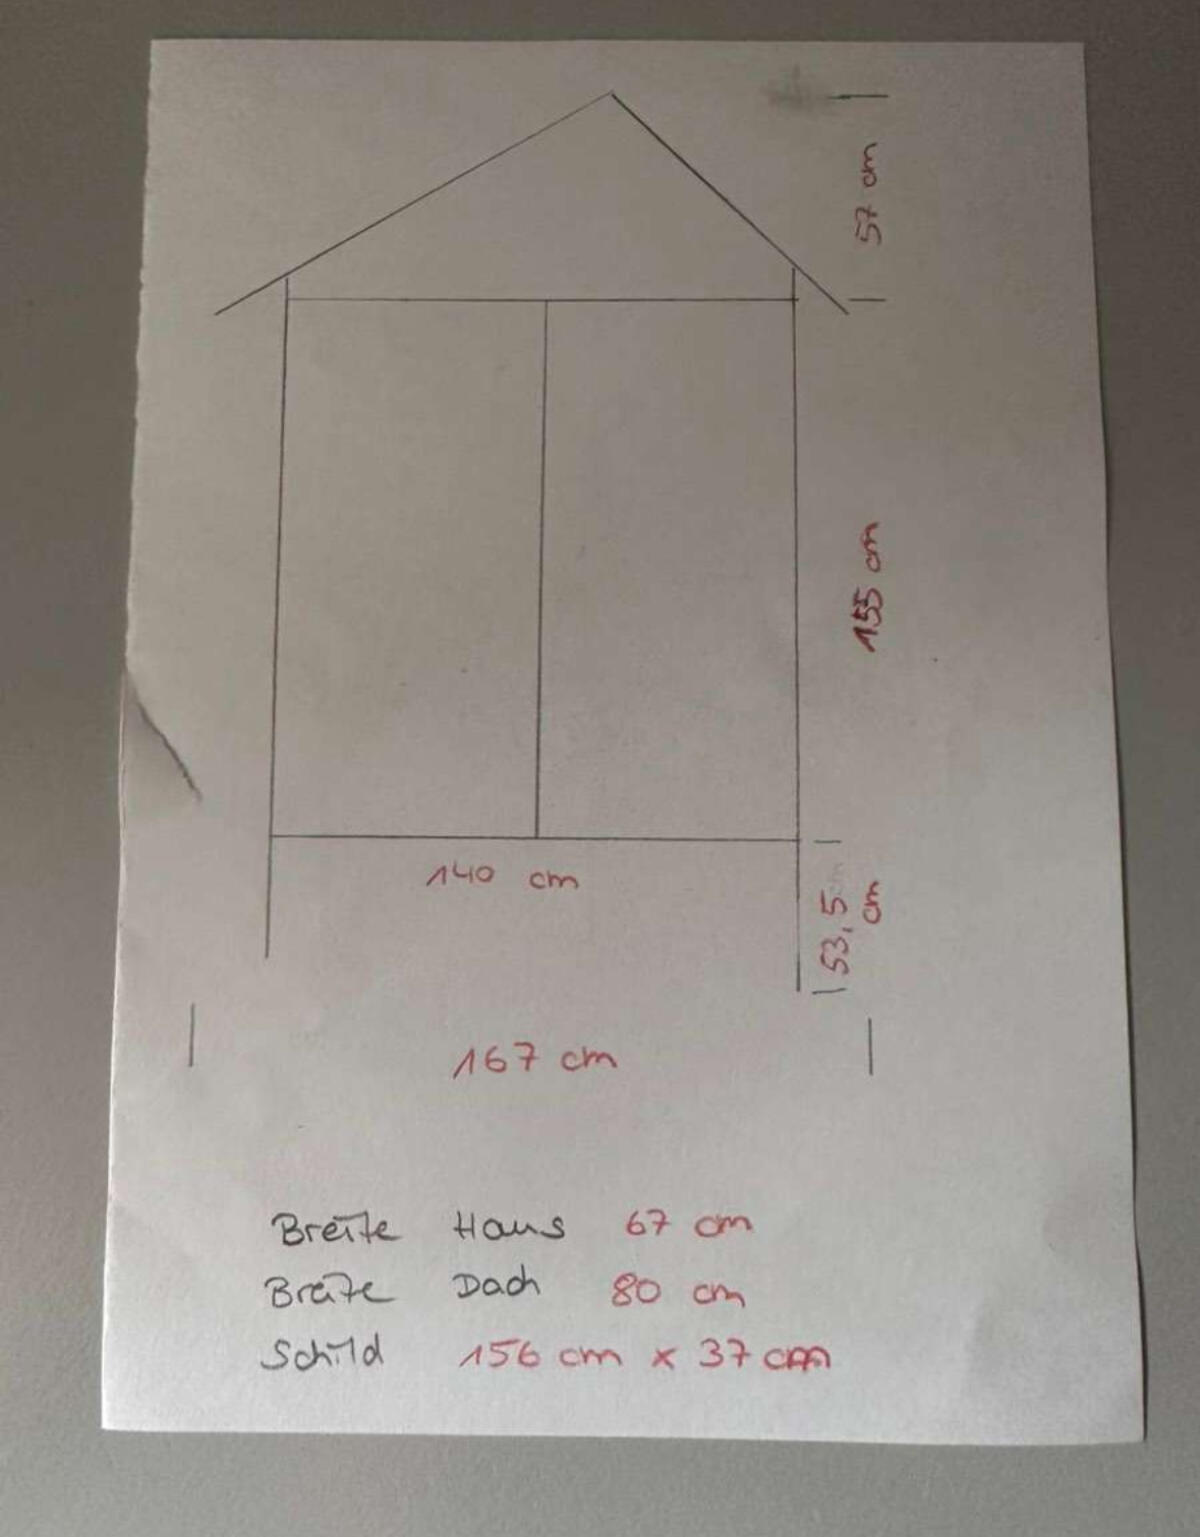 57 cm
155 cm
140 cm
53,5 cm
167 cm
Breite Haus 67 cm
Breite Dach 80 cm
Schild 156 cm x 37 cm